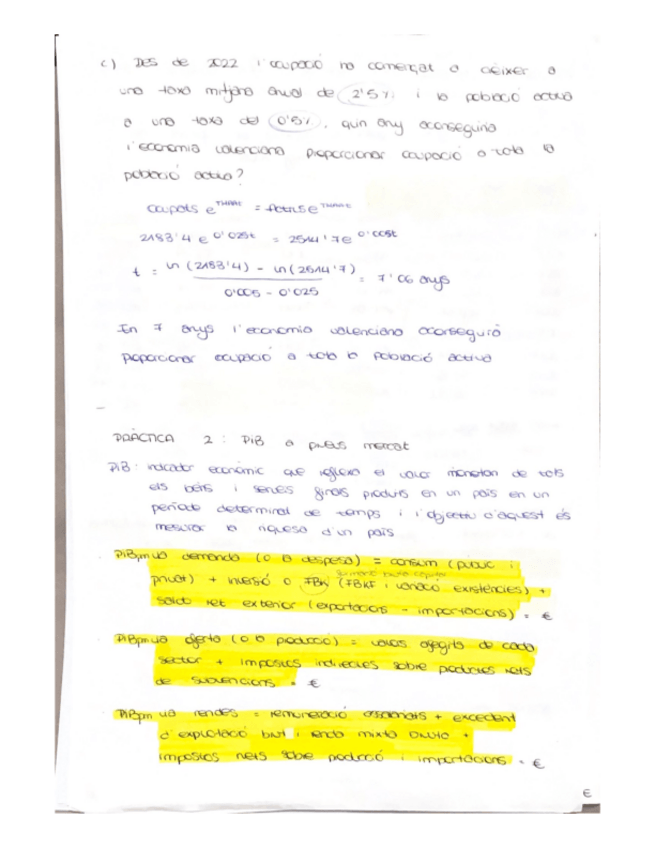 c) Des de 2022 l'ocupació ha començat a créixer a
una taxa mitjana anual de 2'5% i la població activa
a una taxa del 0'5%, quin any aconseguiria
l'economia valenciana proporcionar ocupació a tota la
població activa?
ocupats e^TMAAC = Actius e^TMAAC
2183'4 e^0'025t = 2514'7e^0'005t
t = ln (2183'4) - ln (2514'7) / 0'005 - 0'025 = 7'06 anys
En 7 anys l'economia valenciana aconseguirà
proporcionar ocupació a tota la població activa
PRÀCTICA 2: PIB a preus mercat
PIB: indicador econòmic que reflexa el valor monetari de tots
els béns i serveis finals produïts en un país en un
període determinat de temps i l'objectiu d'aquest és
mesurar la riquesa d'un país
PIBpm via demanda (o la despesa) = consum (públic i
formació bruta capital
privat) + inversió o FBK (FBKF i variació existències) +
saldo net exterior (exportacions - importacions) = €
PIBpm via oferta (o la producció) = valors afegits de cada
sector + impostos indirectes sobre productes nets
de subvencions = €
PIBpm via rendes = remuneració assalariats + excedent
d'explotació brut i renda mixta bruta +
impostos nets sobre producció i importacions = €
€